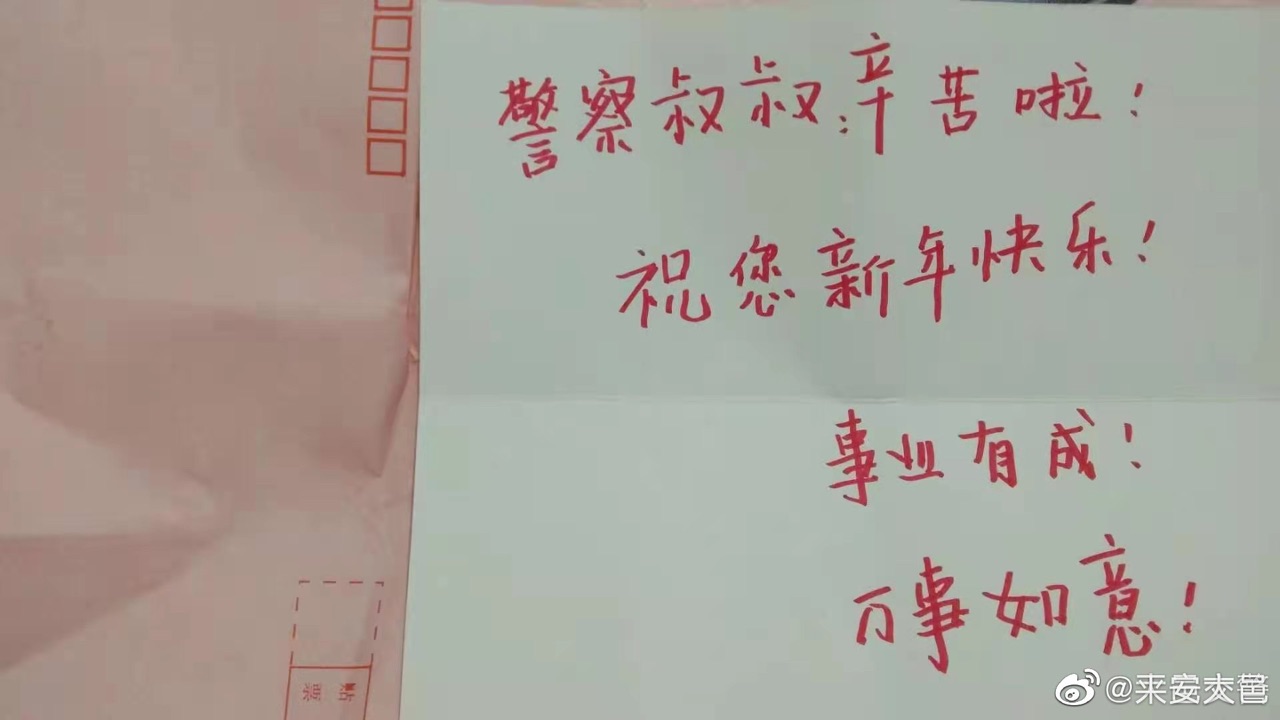 警察叔叔:辛苦啦!
祝您新年快乐!
事业有成!
万事如意!
贴票
@来安交警